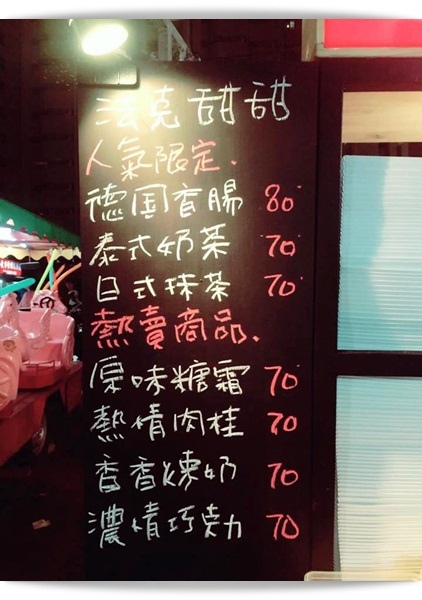 法克甜甜
人氣限定.
德国香腸 80
泰式奶茶 70
日式抹茶 70
熱賣商品.
原味糖霜 70
熱情肉桂 70
香香煉奶 70
濃情巧克力 70